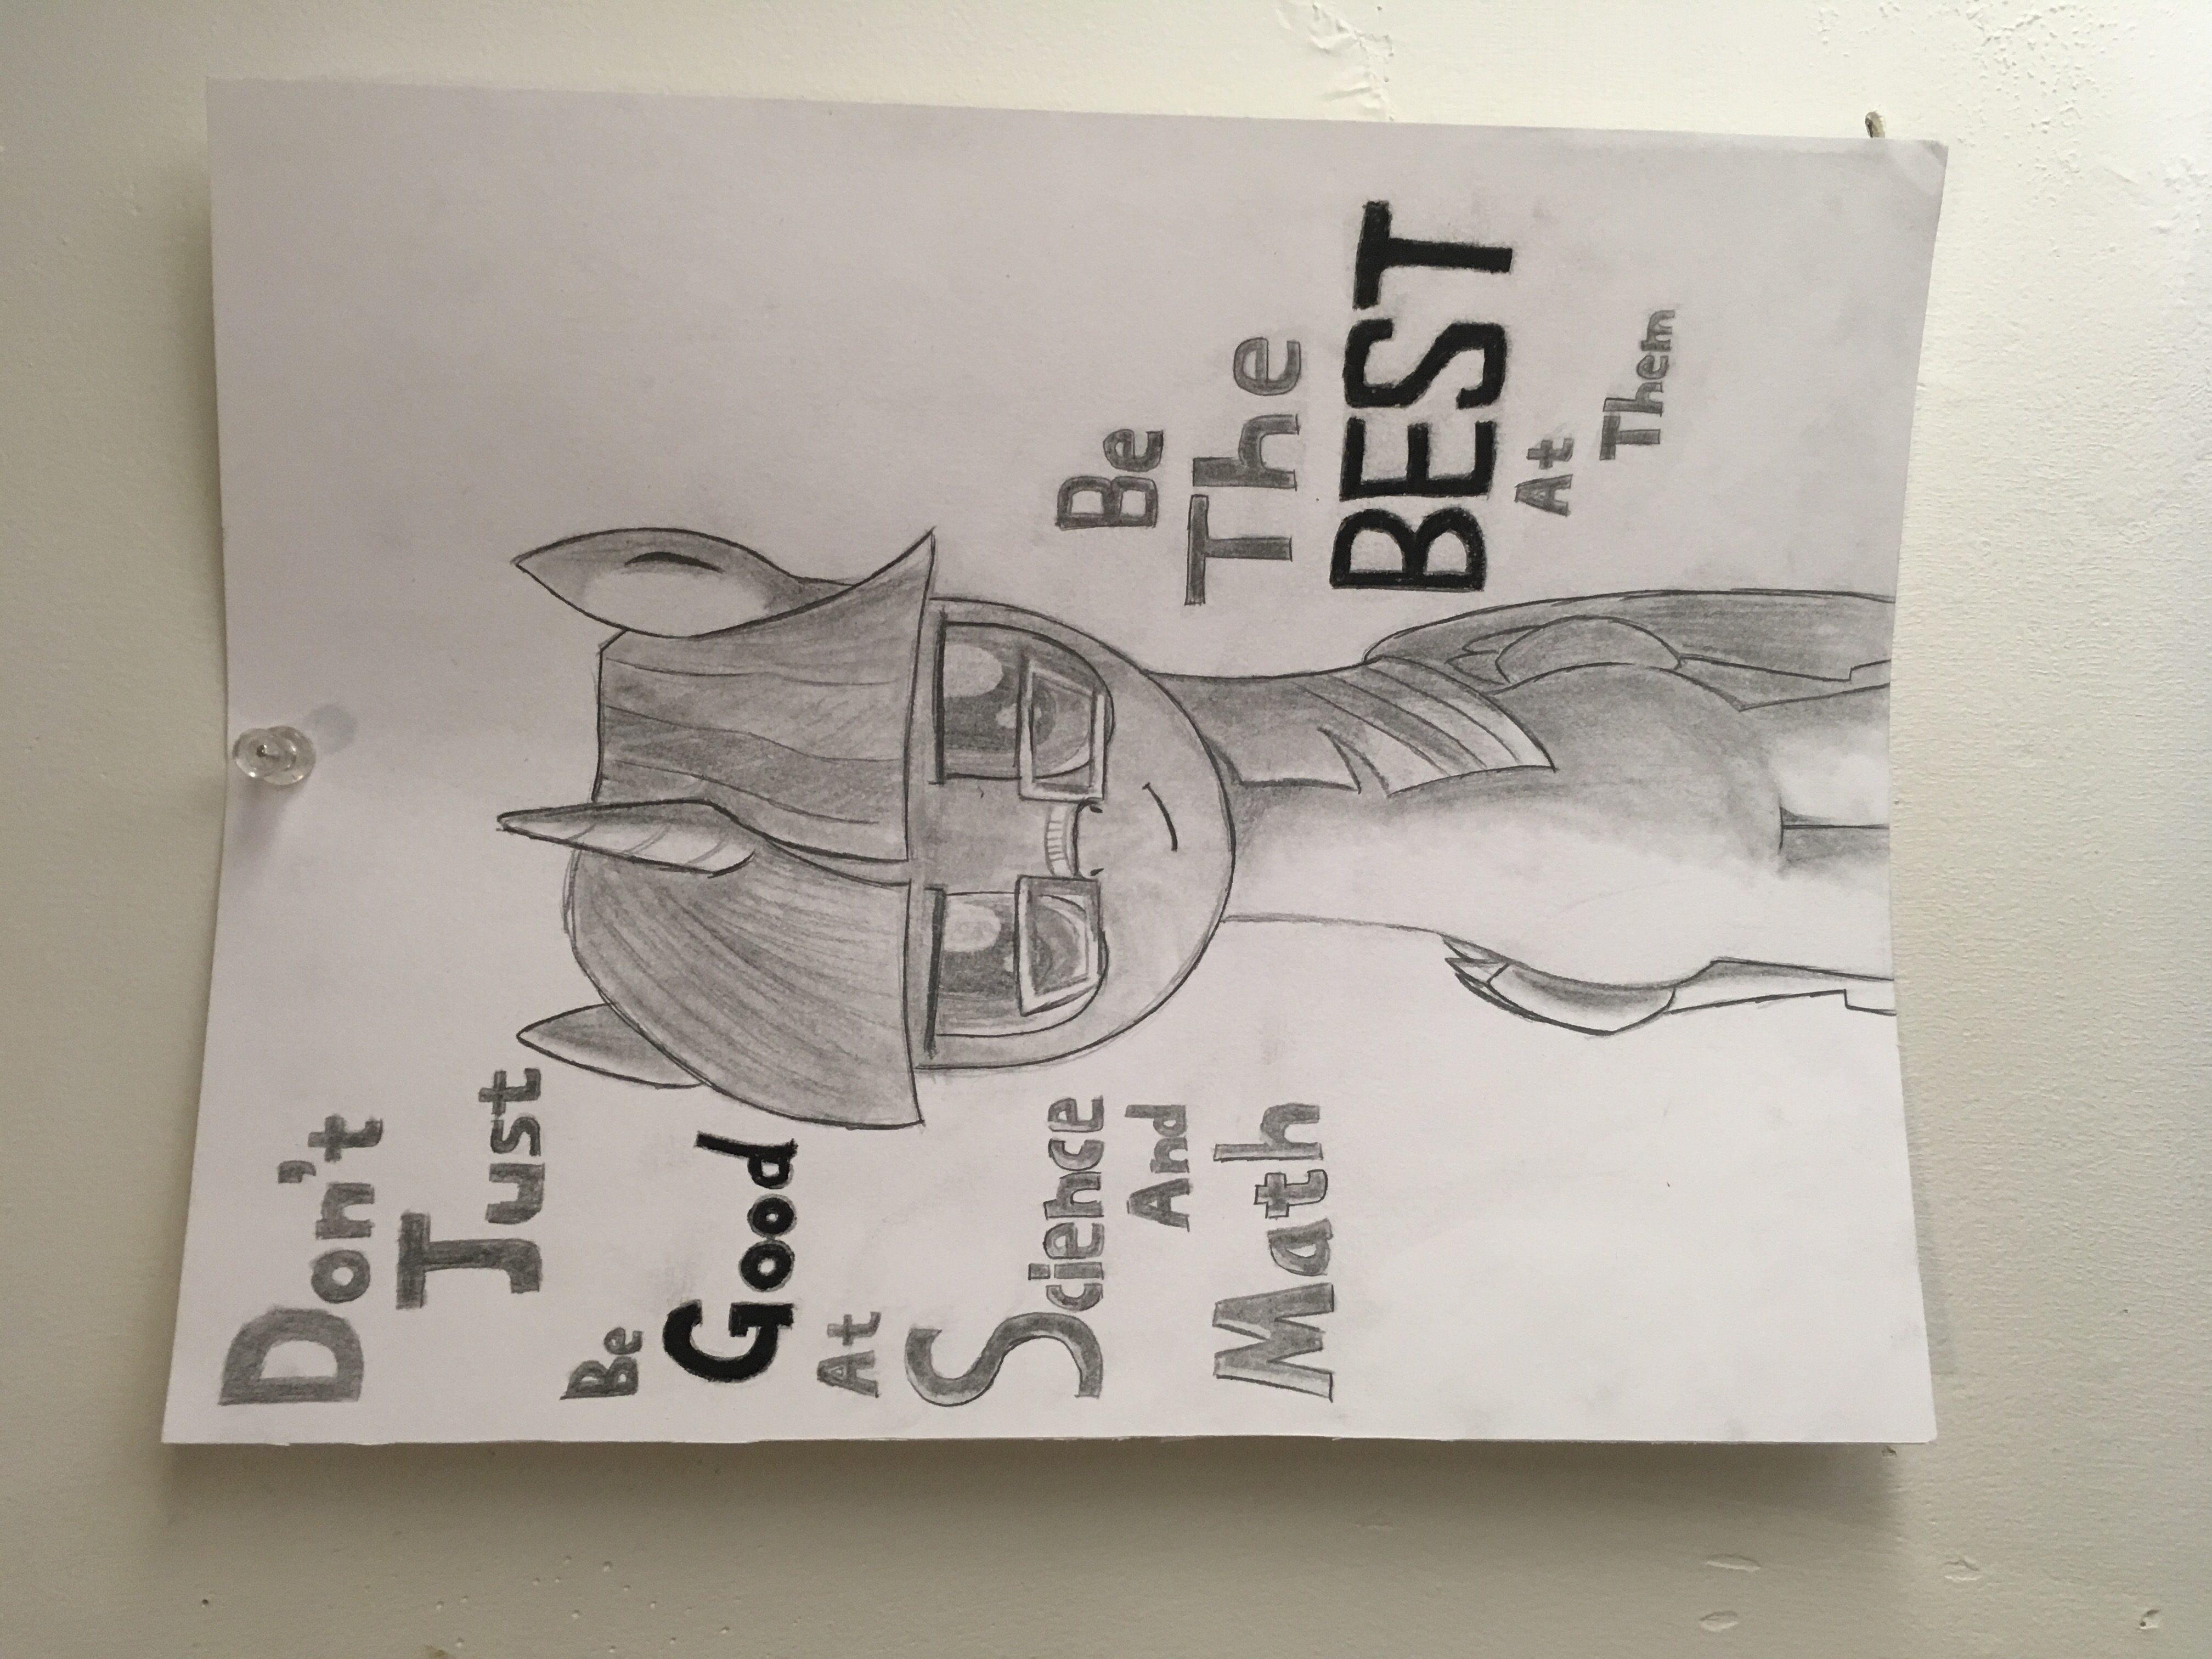 Don't
Just
Be
Good
At
Science
And
Math
Be
The
BEST
At
Them